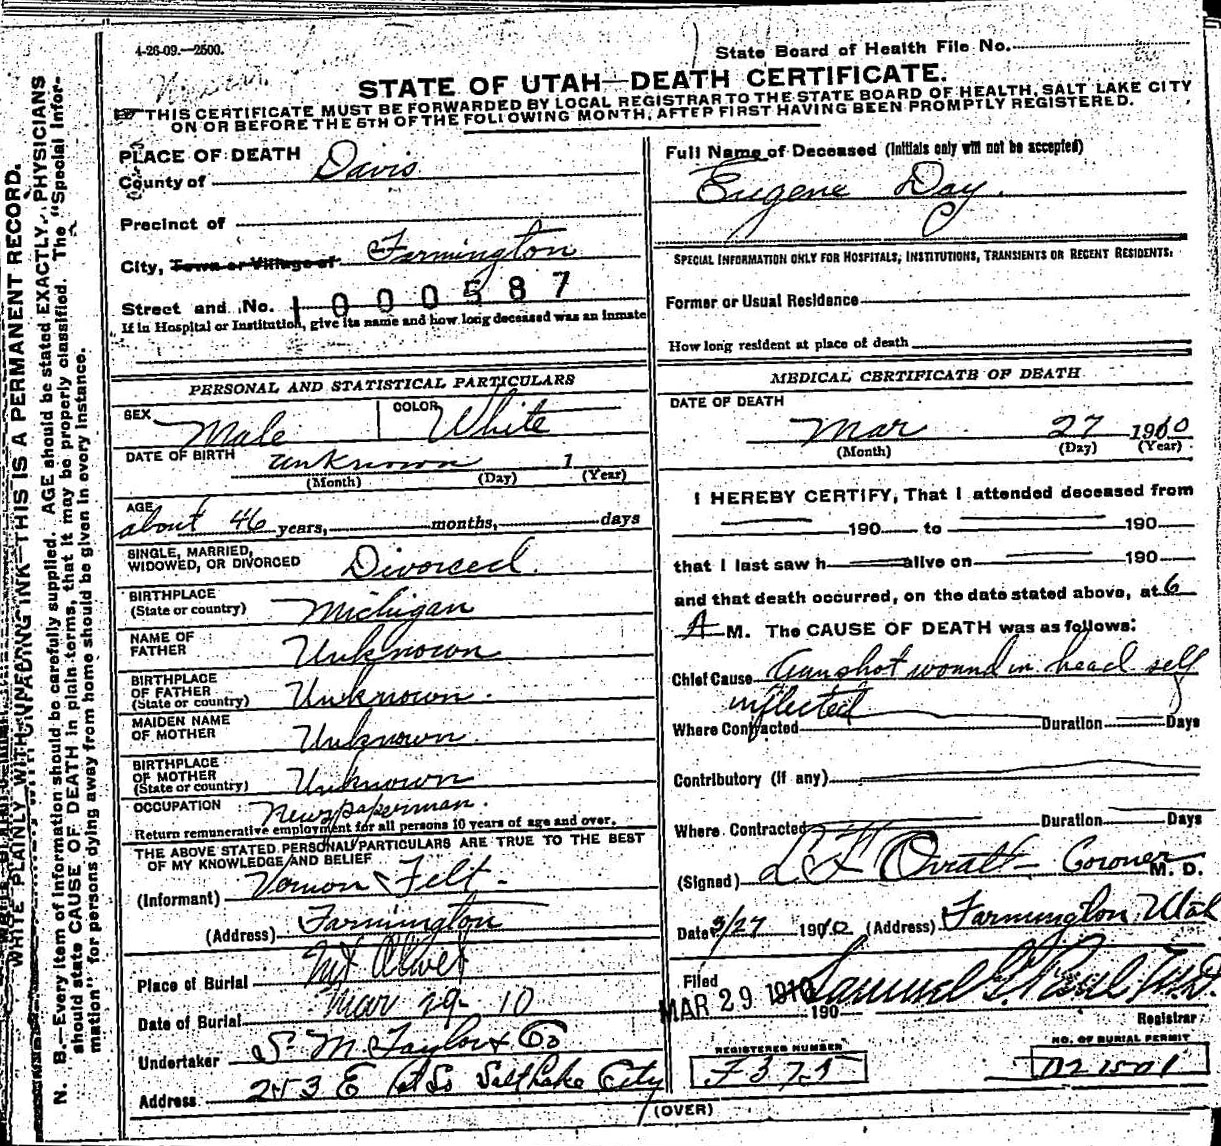 4-26-09.—2500.
State Board of Health File No.
STATE OF UTAH—DEATH CERTIFICATE.
THIS CERTIFICATE MUST BE FORWARDED BY LOCAL REGISTRAR TO THE STATE BOARD OF HEALTH, SALT LAKE CITY
ON OR BEFORE THE 5TH OF THE FOLLOWING MONTH, AFTER FIRST HAVING BEEN PROMPTLY REGISTERED.
WRITE PLAINLY WITH UNFADING INK—THIS IS A PERMANENT RECORD.
N. B.—Every item of information should be carefully supplied. AGE should be stated EXACTLY. PHYSICIANS
should state CAUSE OF DEATH in plain terms, that it may be properly classified. The "Special Infor-
mation" for persons dying away from home should be given in every instance.
PLACE OF DEATH
County of Davis
Precinct of
City, Town or Village of Farmington
Street and No. 1000587
If in Hospital or Institution, give its name and how long deceased was an inmate
PERSONAL AND STATISTICAL PARTICULARS
SEX Male COLOR White
DATE OF BIRTH unknown 1
(Month) (Day) (Year)
AGE
about 46 years, months, days
SINGLE, MARRIED,
WIDOWED, OR DIVORCED Divorced.
BIRTHPLACE
(State or country) Michigan
NAME OF
FATHER Unknown
BIRTHPLACE
OF FATHER
(State or country) Unknown.
MAIDEN NAME
OF MOTHER Unknown
BIRTHPLACE
OF MOTHER
(State or country) Unknown
OCCUPATION Newspaperman.
Return remunerative employment for all persons 10 years of age and over.
THE ABOVE STATED PERSONAL PARTICULARS ARE TRUE TO THE BEST
OF MY KNOWLEDGE AND BELIEF
(Informant) Vernon Felt
(Address) Farmington
Place of Burial Mt Olivet
Date of Burial Mar 29 - 10
Undertaker S. M. Taylor & Co
Address 253 E 1st So Salt Lake City
Full Name of Deceased (Initials only will not be accepted)
Eugene Day.
SPECIAL INFORMATION ONLY FOR HOSPITALS, INSTITUTIONS, TRANSIENTS OR RECENT RESIDENTS.
Former or Usual Residence
How long resident at place of death
MEDICAL CERTIFICATE OF DEATH
DATE OF DEATH
Mar 27 1910
(Month) (Day) (Year)
I HEREBY CERTIFY, That I attended deceased from
190 to 190
that I last saw h alive on 190
and that death occurred, on the date stated above, at 6
A M. The CAUSE OF DEATH was as follows:
Chief Cause Gunshot wound in head self
inflected
Where Contracted Duration Days
Contributory (if any)
Where Contracted Duration Days
(Signed) Coroner M. D.
Date 3/27 1910 (Address) Farmington Utah
Filed
MAR 29 1910 190 Samuel G. Paul M.D.
Registrar
REGISTERED NUMBER NO. OF BURIAL PERMIT
F375
(OVER)